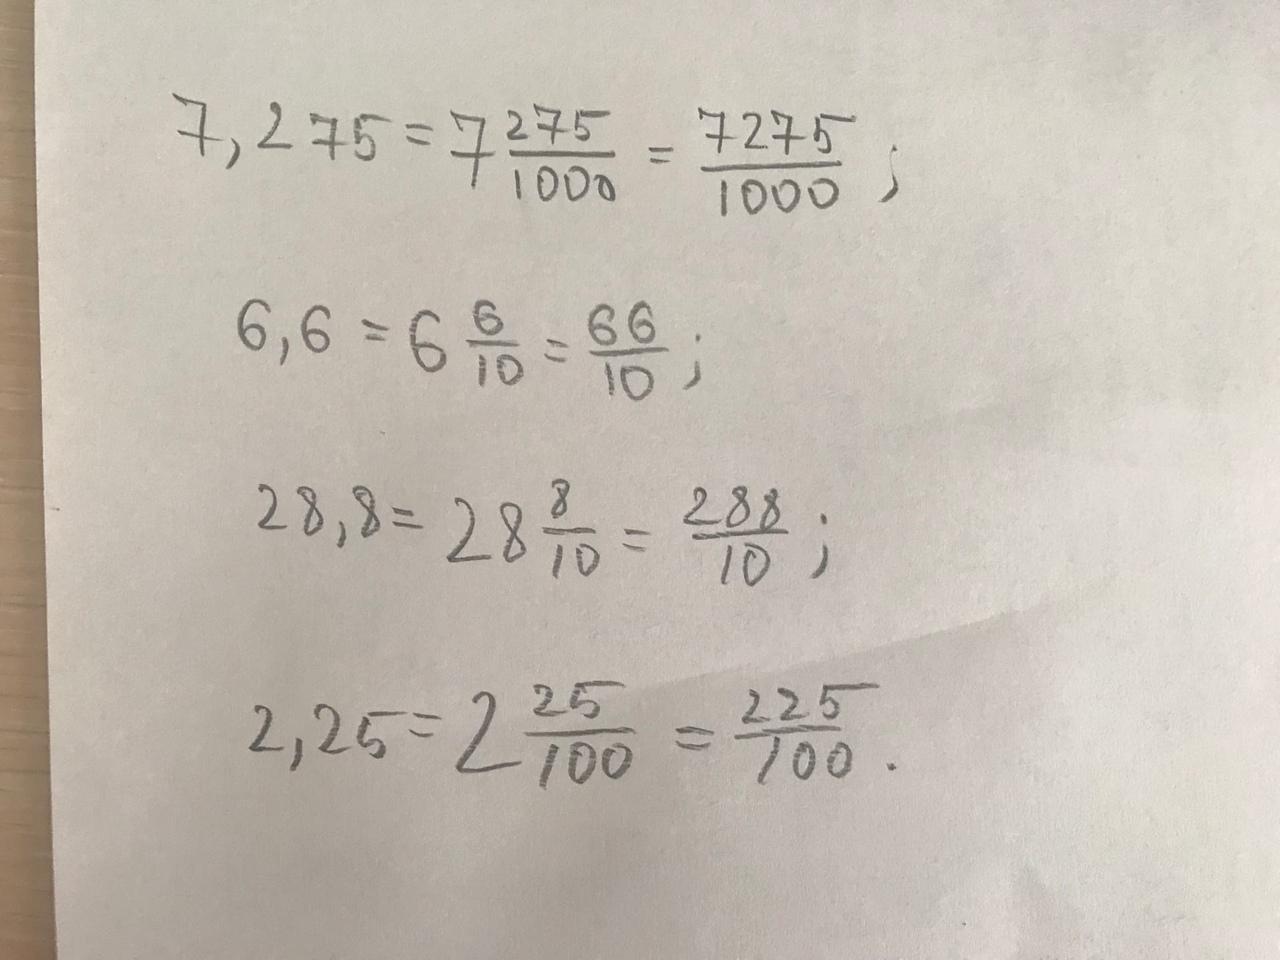 7,275 = 7 275/1000 = 7275/1000 ;
6,6 = 6 6/10 = 66/10 ;
28,8 = 28 8/10 = 288/10 ;
2,25 = 2 25/100 = 225/100 .